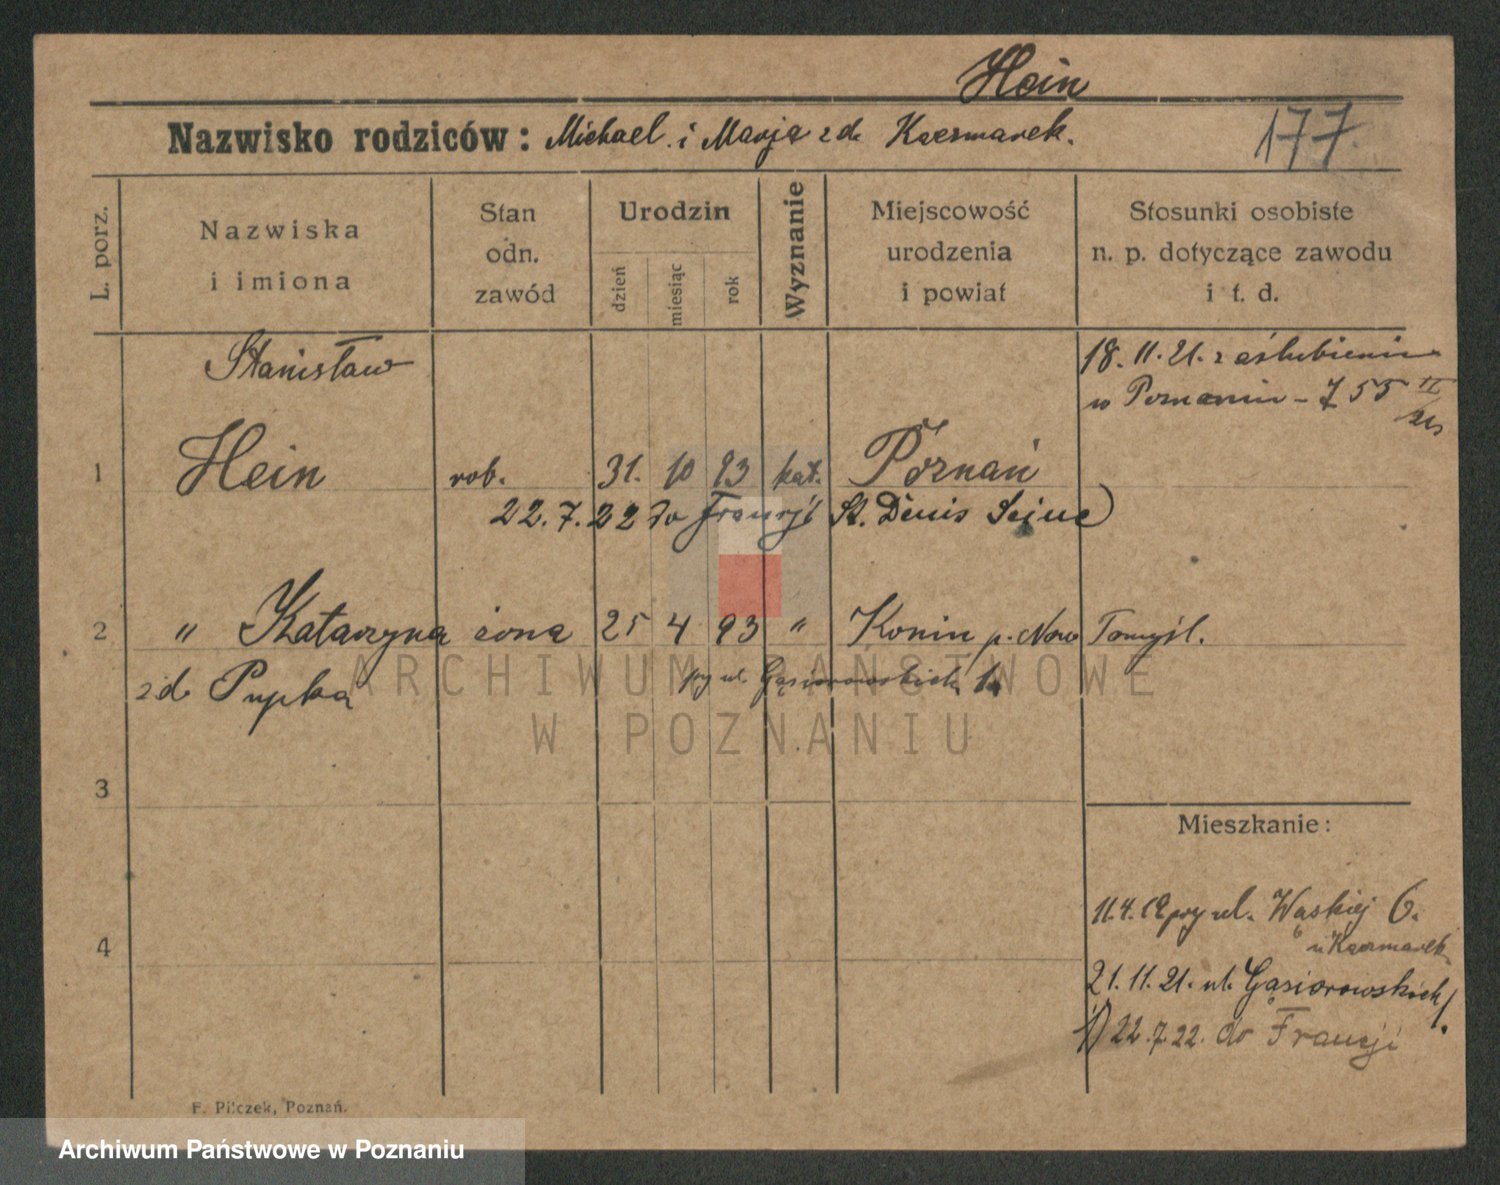 Hein
Nazwisko rodziców: Michael i Marja z d. Kaczmarek.
177
L. porz.
Nazwiska
i imiona
Stan
odn.
zawód
Urodzin
dzień
miesiąc
rok
Wyznanie
Miejscowość
urodzenia
i powiat
Stosunki osobiste
n. p. dotyczące zawodu
i t. d.
Stanisław
18. 11. 21. zaślubieni
w Poznaniu - 55 II
1 Hein rob. 31. 10 93 kat. Poznań
22. 7. 22 do Francji St. Denis Seine)
2 " Katarzyna żona 25 4 93 " Konin p. Nowo Tomyśl.
z d. Pupka
przy ul. Gąsiorowskich 1a
ARCHIWUM PAŃSTWOWE
W POZNANIU
3
Mieszkanie:
11. 4. 19 przy ul. Wąskiej 6.
u Kaczmarek
4
21. 11. 21. ul. Gąsiorowskich 1.
1) 22. 7. 22. do Francji
F. Pilczek, Poznań.
Archiwum Państwowe w Poznaniu